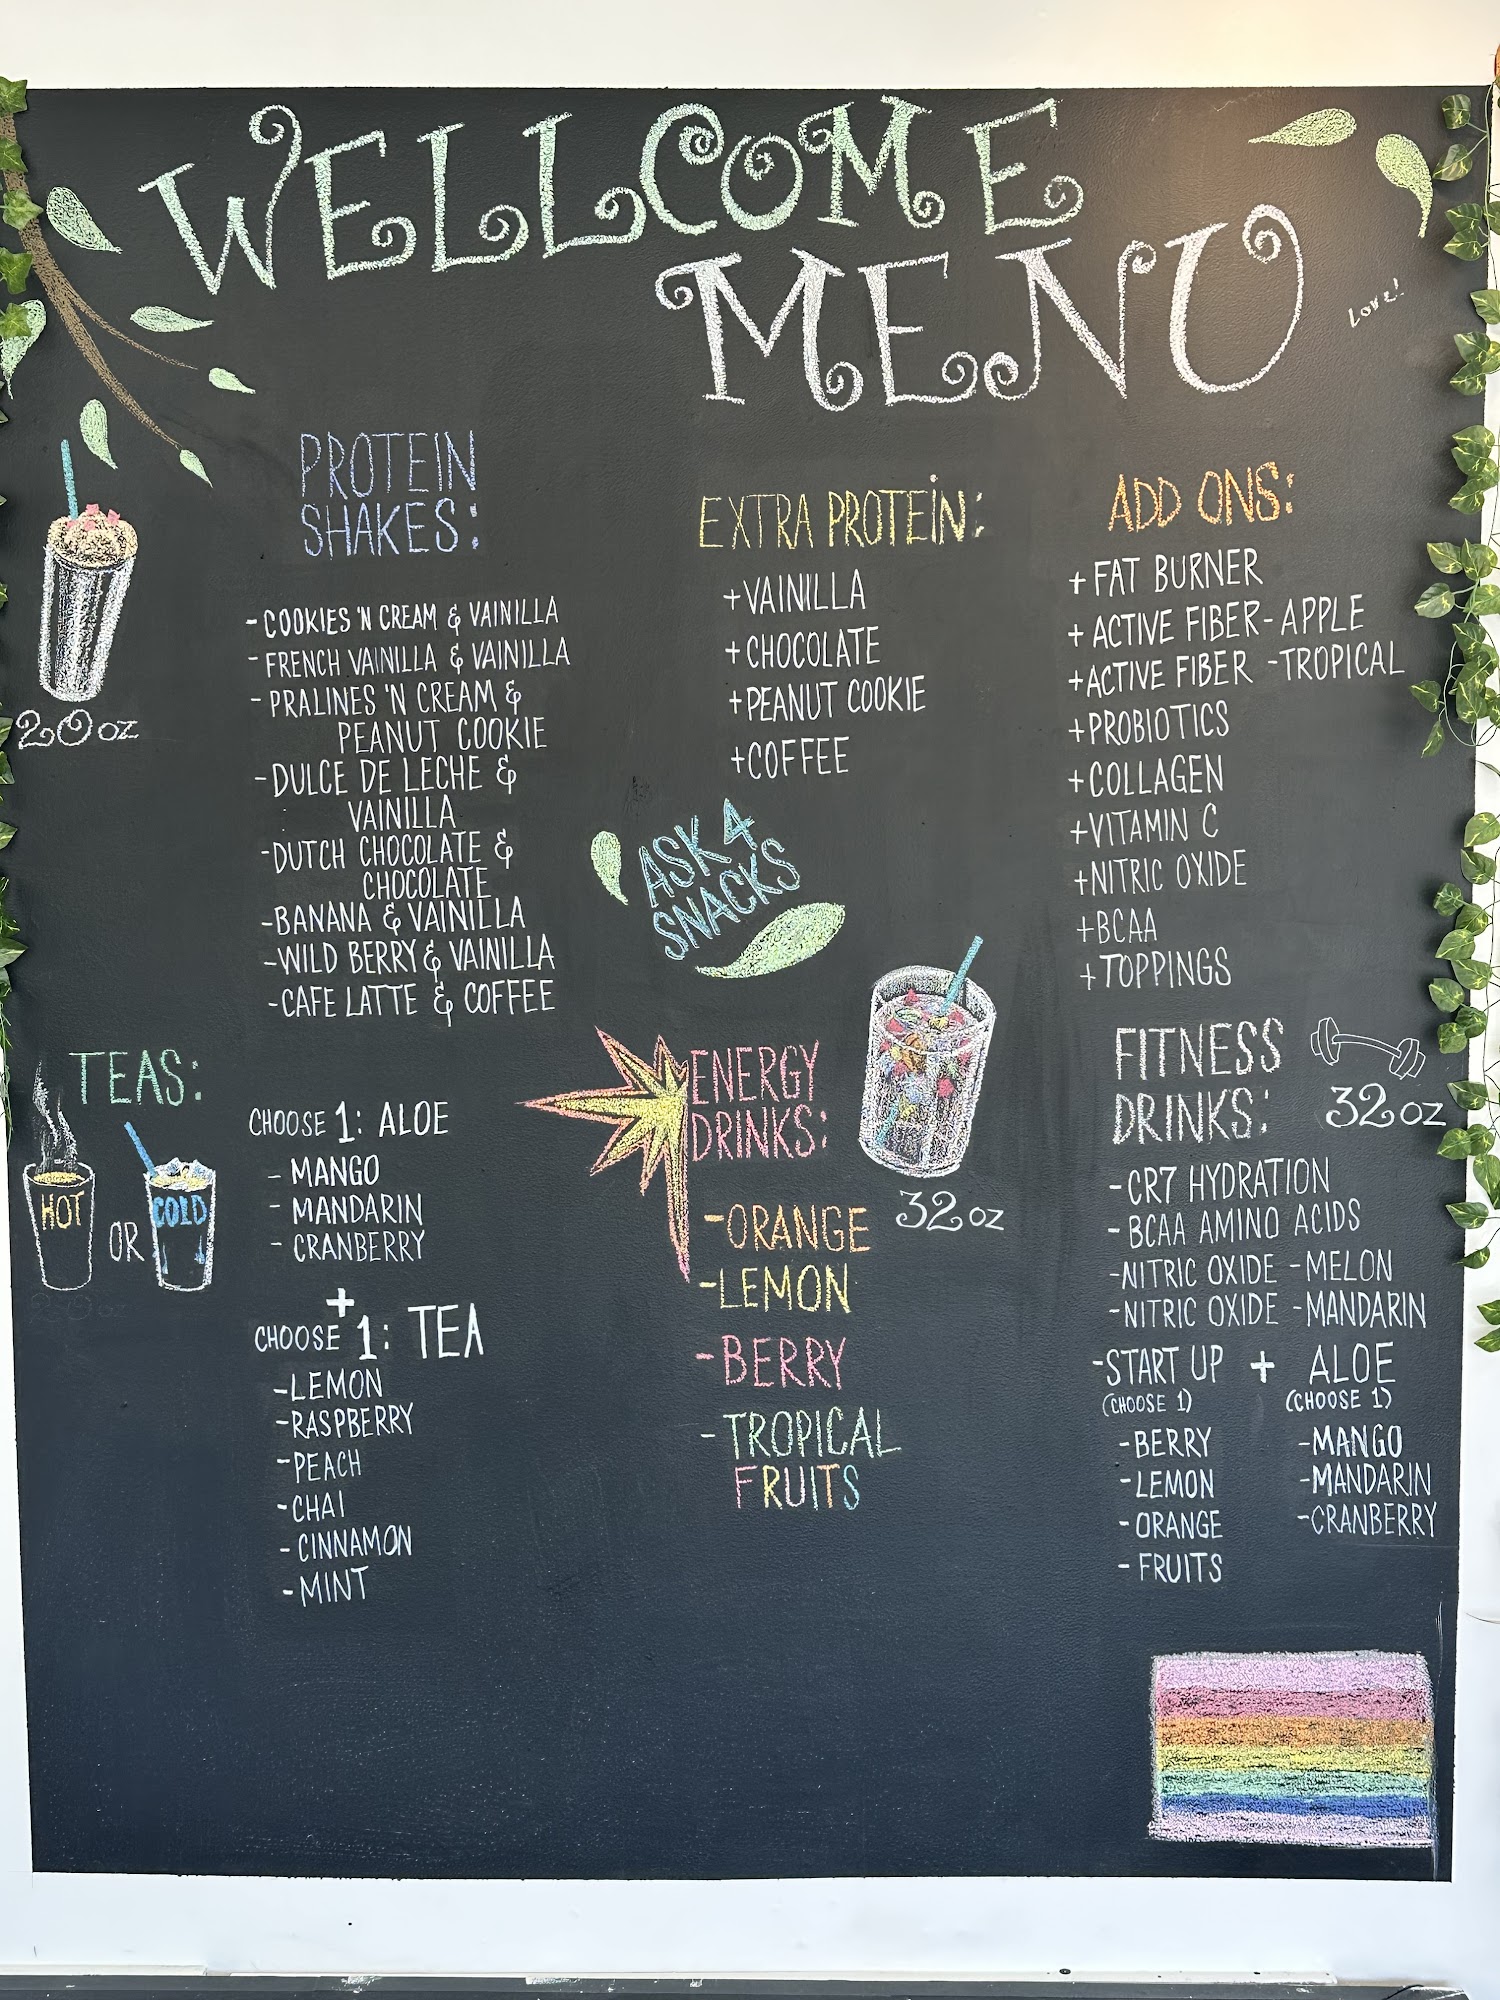 WELLCOME
MENU
Love!
PROTEIN
SHAKES:
20 oz
- COOKIES 'N CREAM & VAINILLA
- FRENCH VAINILLA & VAINILLA
- PRALINES 'N CREAM &
PEANUT COOKIE
- DULCE DE LECHE &
VAINILLA
- DUTCH CHOCOLATE &
CHOCOLATE
- BANANA & VAINILLA
- WILD BERRY & VAINILLA
- CAFE LATTE & COFFEE
EXTRA PROTEIN:
+ VAINILLA
+ CHOCOLATE
+ PEANUT COOKIE
+ COFFEE
ADD ONS:
+ FAT BURNER
+ ACTIVE FIBER - APPLE
+ ACTIVE FIBER - TROPICAL
+ PROBIOTICS
+ COLLAGEN
+ VITAMIN C
+ NITRIC OXIDE
+ BCAA
+ TOPPINGS
ASK 4
SNACKS
TEAS:
HOT
OR
COLD
CHOOSE 1: ALOE
- MANGO
- MANDARIN
- CRANBERRY
+
CHOOSE 1: TEA
- LEMON
- RASPBERRY
- PEACH
- CHAI
- CINNAMON
- MINT
ENERGY
DRINKS:
32 oz
- ORANGE
- LEMON
- BERRY
- TROPICAL
FRUITS
FITNESS
DRINKS:
32 oz
- CR7 HYDRATION
- BCAA AMINO ACIDS
- NITRIC OXIDE - MELON
- NITRIC OXIDE - MANDARIN
- START UP + ALOE
(CHOOSE 1) (CHOOSE 1)
- BERRY - MANGO
- LEMON - MANDARIN
- ORANGE - CRANBERRY
- FRUITS